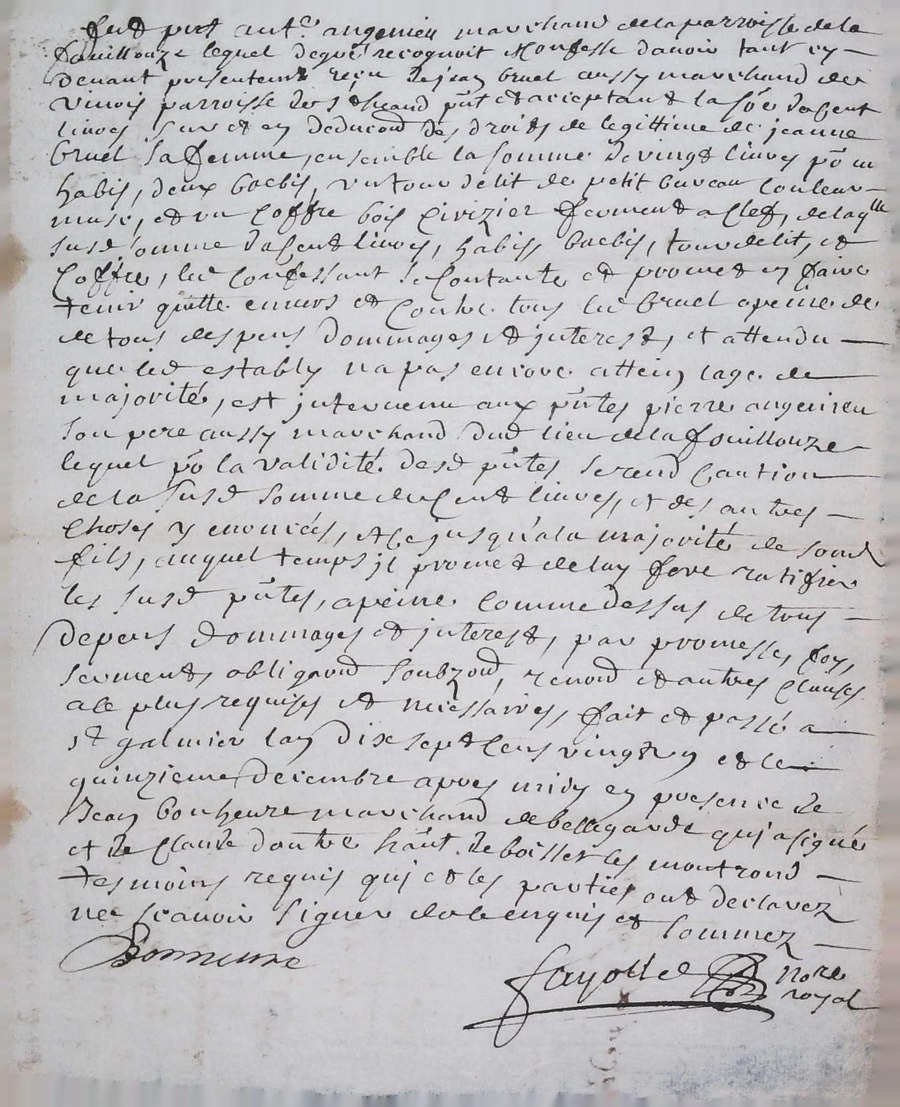 fud prt ant.^e angenieu marchand de la parroisse de la
fouillouze lequel de gré recognoit et confesse d'avoir tant cy —
devant presentement reçu de jean bruel aussy marchand de
vinois parroisse de s^t heand pñt et acceptant la sõe de cent
livres sur et en deducõn des droits de legittime de jeanne
bruel sa femme, ensemble la somme de vingt livres põ un
habis, deux brebis, un tour de lit de petit bureau couleur —
muse, et un coffre bois cirizier ferment a clef, de laq^lle
susd somme de cent livres, habis, brebis, tour de lit, et
coffre, led confessant se contante et promet en faire
tenir quitte envers et contre tous led bruel a peine de
de tous despens dommages et interests, et attendu —
que led estably na pas encore attein lage de
majorité, est intervenu aux pñtes pierre angenieu
son pere aussy marchand dud lieu de la fouillouze
lequel põ la validité desd pñtes se rend caution
de la susd somme de cent livres, et des autres —
choses y enoncées, et ce jusqu'a la majorité de sond
fils, auquel temps il promet de luy fere ratifier
les susd pñtes, a peine comme dessus de tous —
depens dommages et interests, par promesse, foy,
serment, obligaõn soubzõn, renõn et autres clauses
a ce plus requises et necessaires, fait et passé a
s^t galmier lan dix sept cens vingt un et le —
quinzieme decembre apres midy en presence de
Jean bonheure marchand de bellegarde qui a signé
et de Claude d'outre haut de boisset les montrond —
tesmoins requis qui et les parties ont declarez
ne scavoir signer de ce enquis et sommez —
Bonneure
fayolle nore
royal